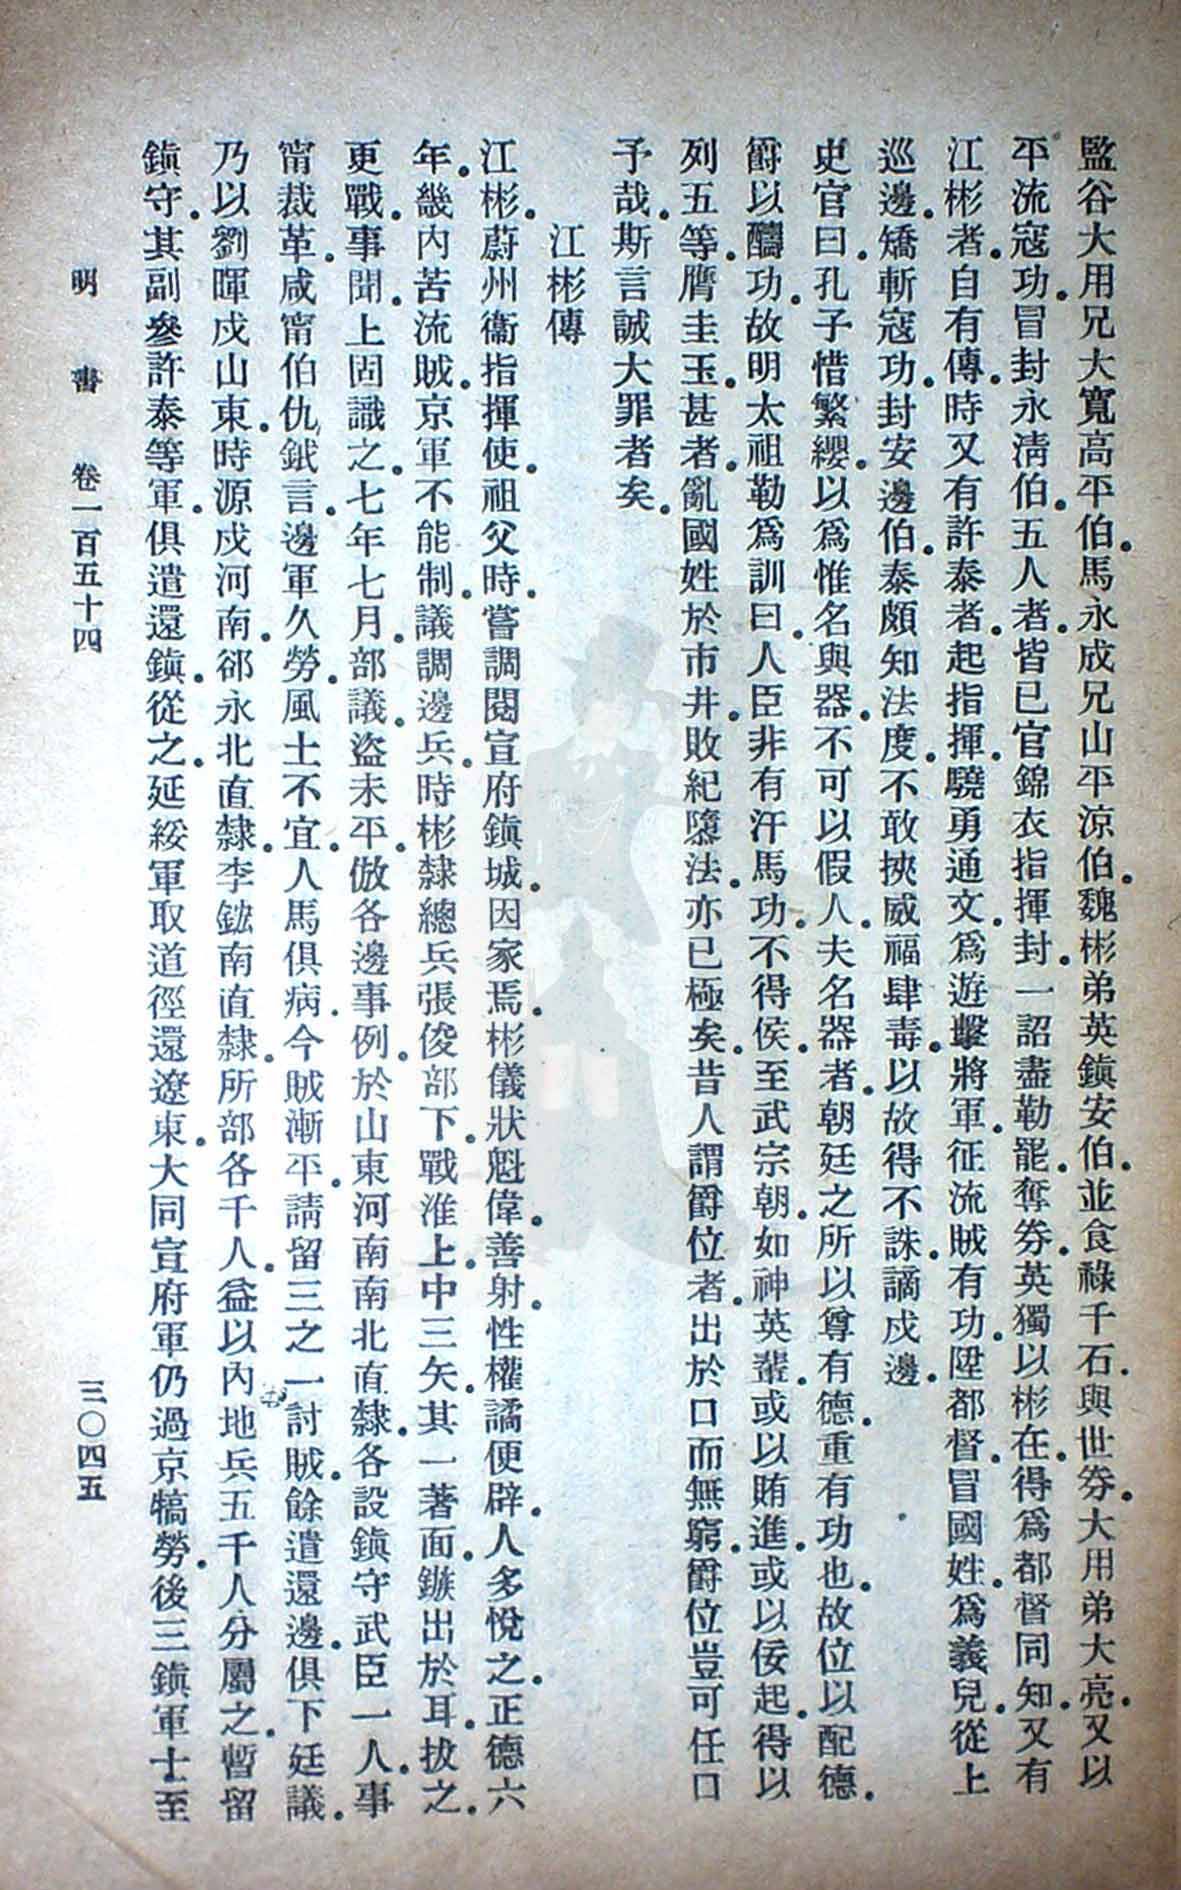 監谷大用兄大寬高平伯。馬永成兄山平涼伯。魏彬弟英鎮安伯。並食祿千石。與世券。大用弟大亮。又以
平流寇功。冒封永清伯。五人者。皆已官錦衣指揮。封一詔盡勒罷。奪券。英獨以彬在。得爲都督同知。又有
江彬者。自有傳。時又有許泰者。起指揮。驍勇通文。爲遊擊將軍。征流賊有功。陞都督。冒國姓。爲義兒。從上
巡邊。矯斬寇功。封安邊伯。泰頗知法度。不敢挾威福肆毒。以故得不誅。謫戍邊。
史官曰。孔子惜繁纓。以爲惟名與器。不可以假人。夫名器者。朝廷之所以尊有德。重有功也。故位以配德。
爵以醻功。故明太祖勒爲訓曰。人臣非有汗馬功。不得侯。至武宗朝。如神英輩。或以賄進。或以佞起。得以
列五等。膺圭玉。甚者。亂國姓於市井。敗紀隳法。亦已極矣。昔人謂爵位者。出於口而無窮。爵位豈可任口
予哉。斯言誠大罪者矣。
江彬傳
江彬。蔚州衞指揮使。祖父時。嘗調閱宣府鎮城。因家焉。彬儀狀魁偉。善射。性權譎便辟。人多悅之。正德六
年。畿內苦流賊。京軍不能制。議調邊兵。時彬隸總兵張俊部下。戰淮上。中三矢。其一著面。鏃出於耳。拔之。
更戰。事聞。上固識之。七年七月。部議。盜未平。倣各邊事例。於山東河南南北直隸。各設鎮守武臣一人。事
甯裁革。咸甯伯仇鉞言。邊軍久勞。風土不宜。人馬俱病。今賊漸平。請留三之一討賊。餘遣還邊。俱下廷議。
乃以劉暉戍山東。時源戍河南。郤永北直隸。李鋐南直隸。所部各千人。益以內地兵五千人分屬之。暫留
鎮守。其副參許泰等軍。俱遣還鎮。從之。延綏軍取道徑還遼東。大同宣府軍仍過京犒勞。後三鎮軍士至
明書 卷一百五十四 三〇四五